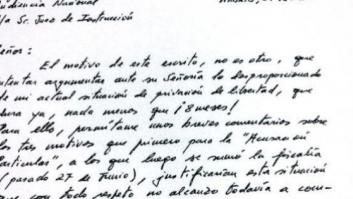 Audiencia Nacional
Sr. Juez de Instrucción
Señor:
El motivo de este escrito, no es otro, que
intentar argumentar ante su Señoría lo desproporcionado
de mi actual situación de privación de libertad, que
dura ya, nada menos que ¡8 meses!
Para ello, permítame unos breves comentarios sobre
los tres motivos que primero para la "Acusación
Particular", a los que luego se sumó la fiscalía
(pasado 27 de Junio), justificarían esta situación
que con todo respeto no alcanzo todavía a com-